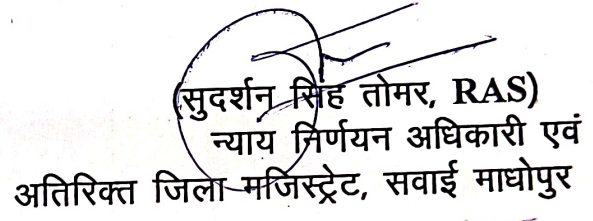 (सुदर्शन सिंह तोमर, RAS)
न्याय निर्णयन अधिकारी एवं
अतिरिक्त जिला मजिस्ट्रेट, सवाई माधोपुर